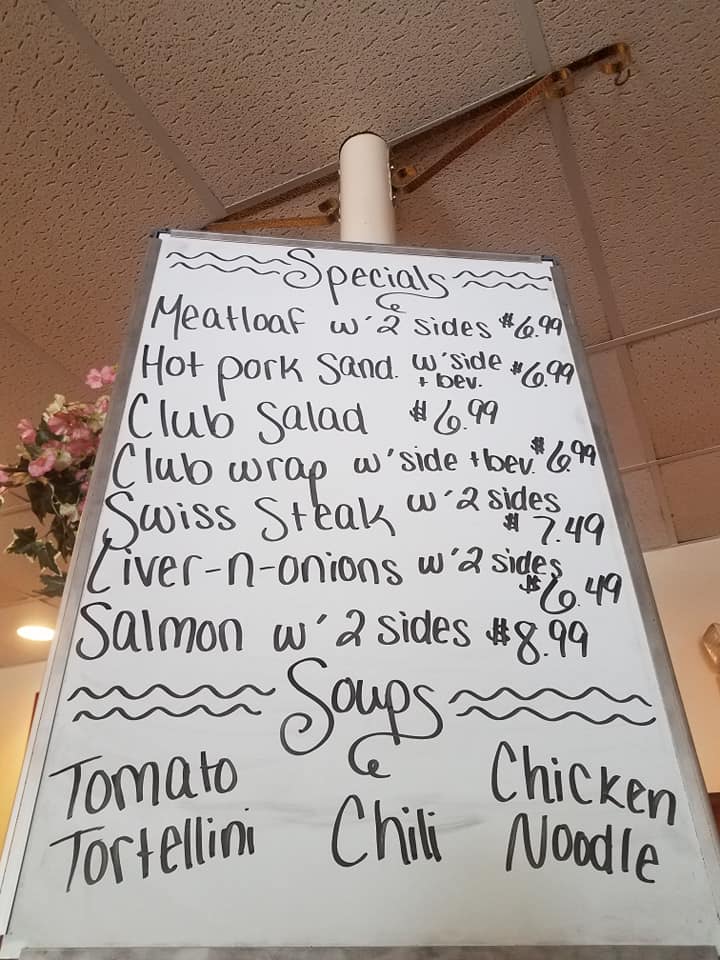 Specials
Meatloaf w' 2 sides $6.99
Hot pork Sand. w' side + bev. $6.99
Club Salad $6.99
Club wrap w' side + bev. $6.99
Swiss Steak w' 2 sides $7.49
Liver-n-onions w' 2 sides $6.49
Salmon w' 2 sides $8.99
Soups
Tomato Tortellini
Chili
Chicken Noodle